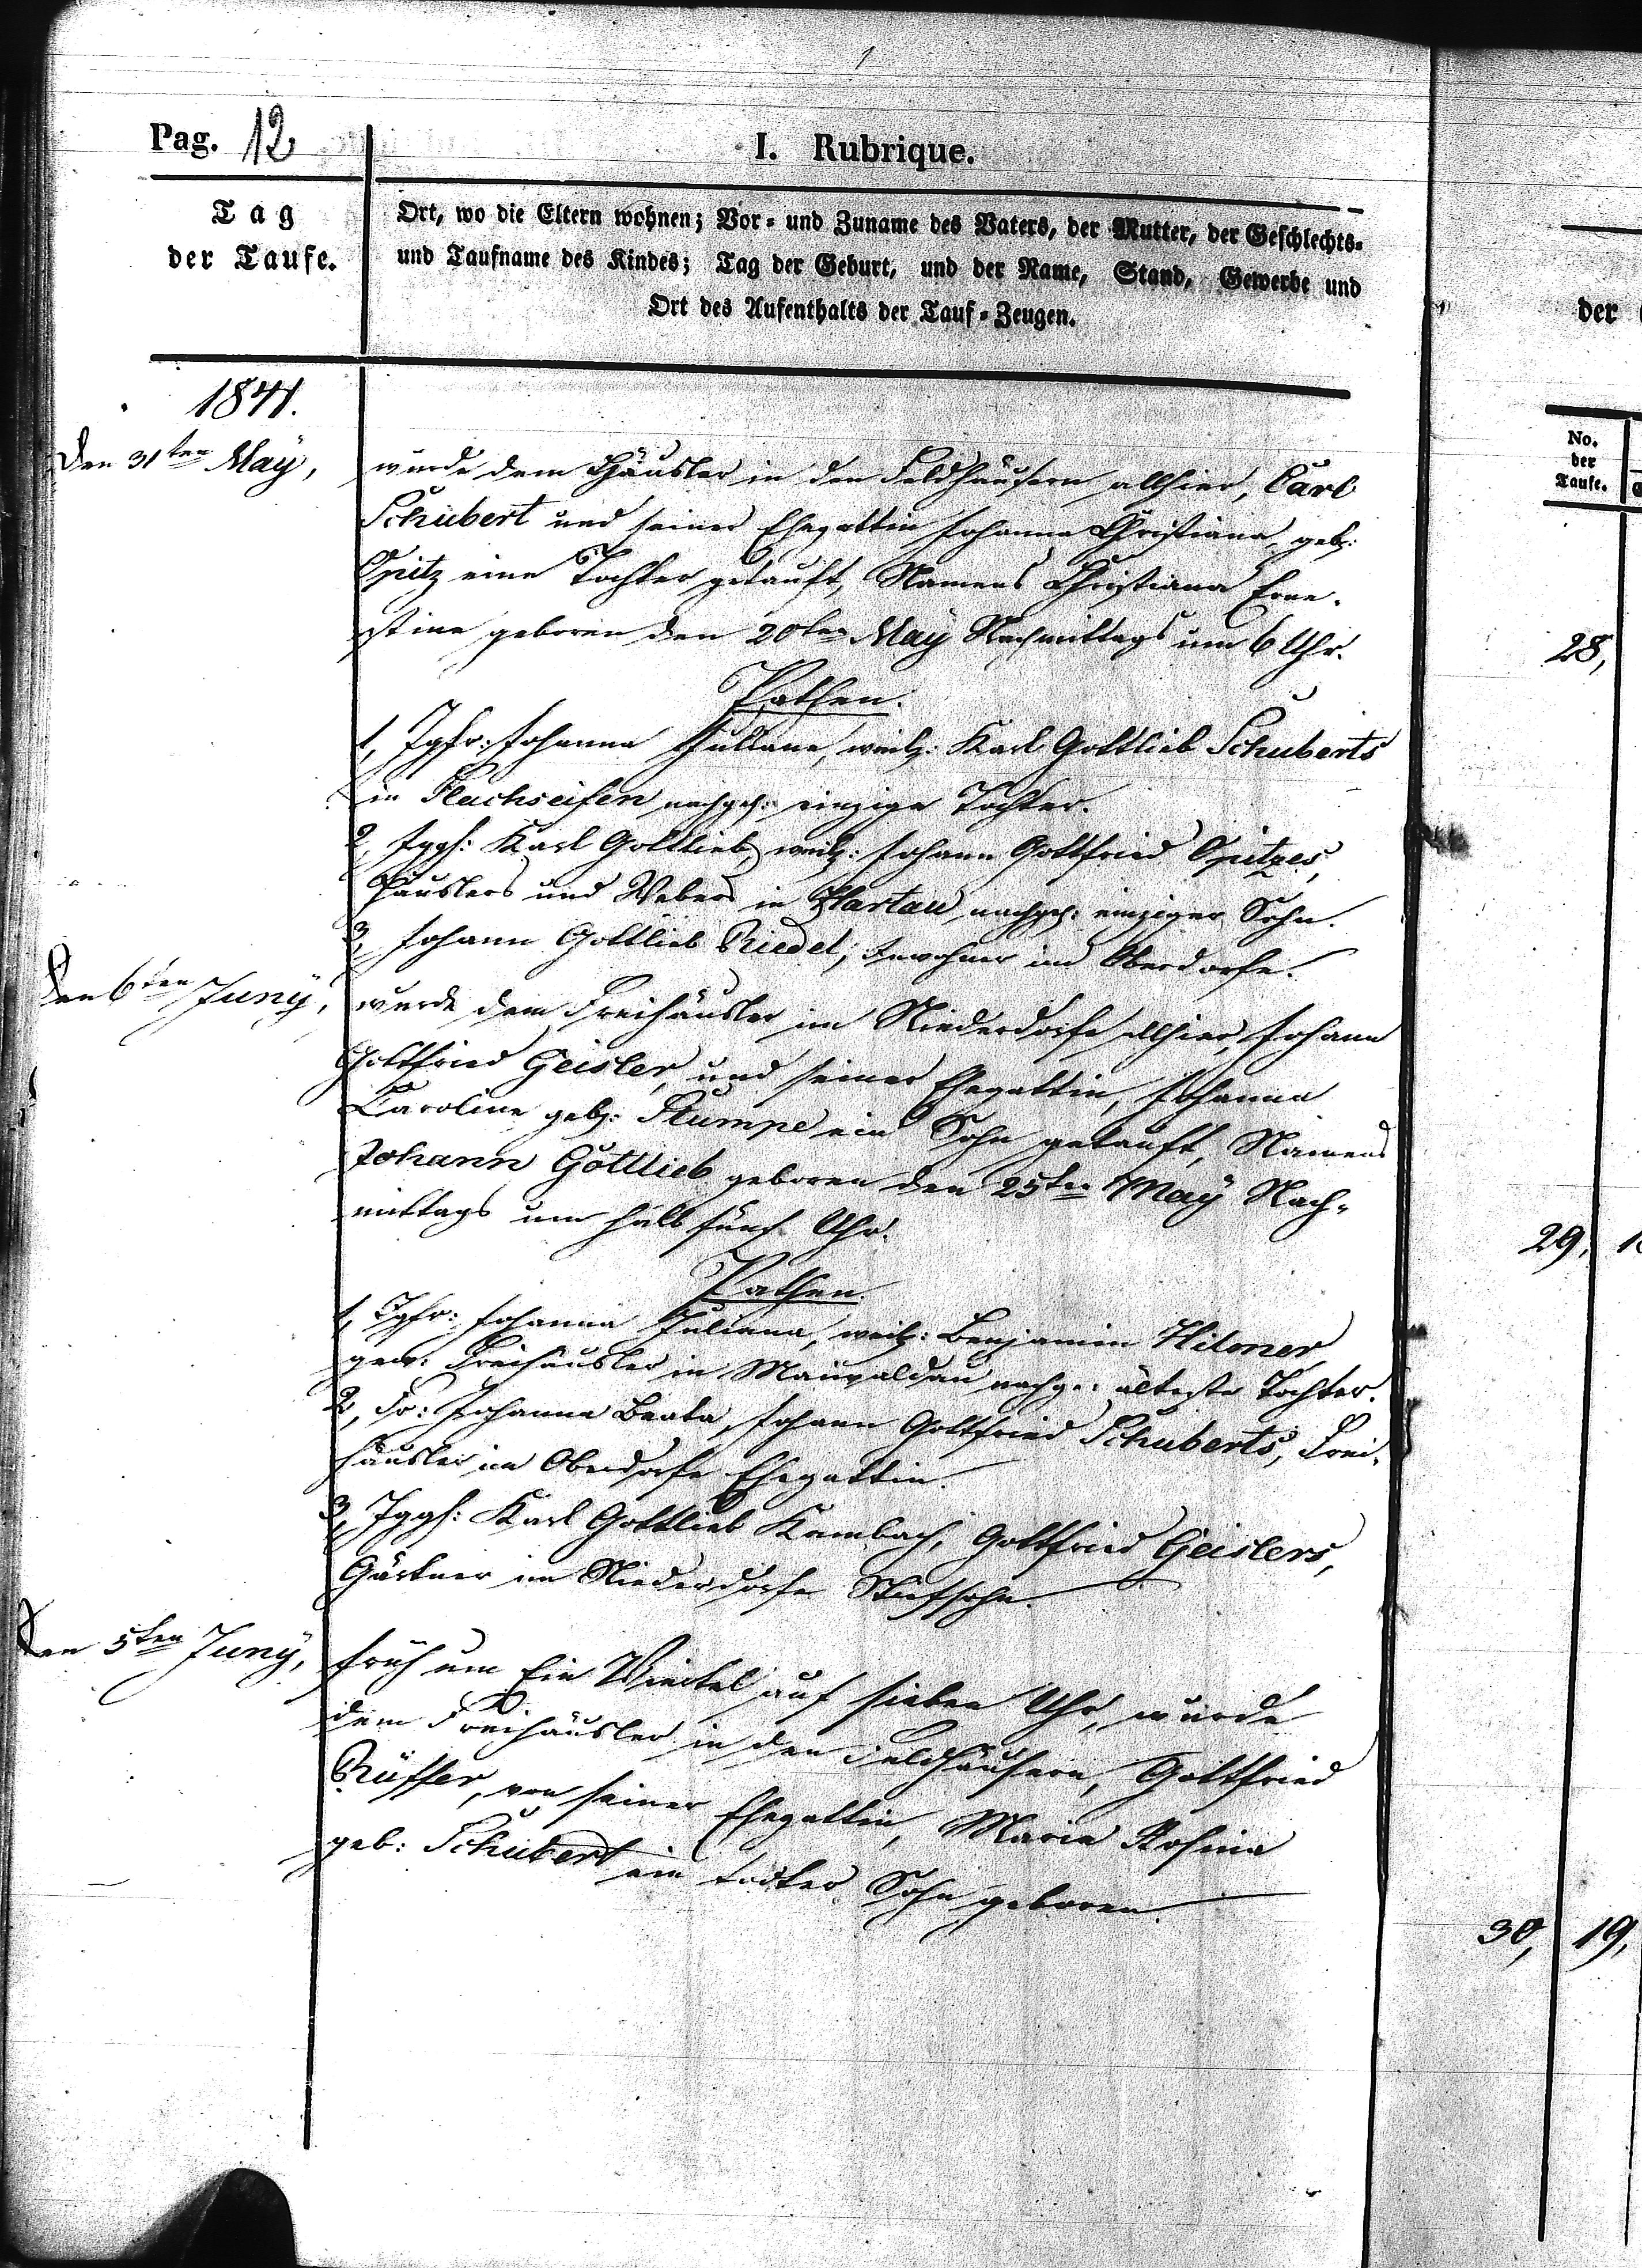 Pag. 12
I. Rubrique.
Tag
der Taufe.
Ort, wo die Eltern wohnen; Vor- und Zuname des Vaters, der Mutter, der Geschlechts-
und Taufname des Kindes; Tag der Geburt, und der Name, Stand, Gewerbe und
Ort des Aufenthalts der Tauf-Zeugen.
1841.
Den 31ten May,
wurde dem Häusler in den Feldhäusern allhier, Carl
Schubert und seiner Ehegattin Johanna Christiana, geb:
Opitz eine Tochter getauft, Namens Christiana Erne-
stine geboren den 20ten May Nachmittags um 6 Uhr.
Pathen.
1, Jgfr: Johanna Juliane, weil: Karl Gottlieb Schuberts
in Flachseifen nachgel: einzige Tochter.
2, Jggs: Karl Gottlieb, weil: Johann Gottfried Opitzes,
Häuslers und Webers in Hartau nachgel: einziger Sohn.
3, Johann Gottlieb Riedel, Inwohner im Oberdorfe.
Den 6ten Juny,
wurde dem Freihäusler im Niederdorfe allhier, Johann
Gottfried Geisler, und seiner Ehegattin, Johanna
Caroline geb: Stumpe ein Sohn getauft, Namens
Johann Gottlieb geboren den 25ten May Nach-
mittags um halb fünf Uhr.
Pathen.
1, Jgfr: Johanna Juliana, weil: Benjamin Hilmer,
gew: Freihäusler in Maiwaldau nachg.: älteste Tochter.
2, Fr: Johanna Beata, Johann Gottfried Schuberts, Frei-
häusler im Oberdorfe Ehegattin.
3, Jggs: Karl Gottlieb Kambach, Gottfried Geislers,
Gärtner im Niederdorfe Stiefsohn.
Den 5ten Juny,
früh um Ein Viertel auf sieben Uhr, wurde
dem Freihäusler in den Feldhäusern, Gottfried
Rüffer, von seiner Ehegattin, Maria Rosina
geb: Schubert ein todter Sohn geboren.
der
No.
der
Taufe.
28,
29,
30, 19,